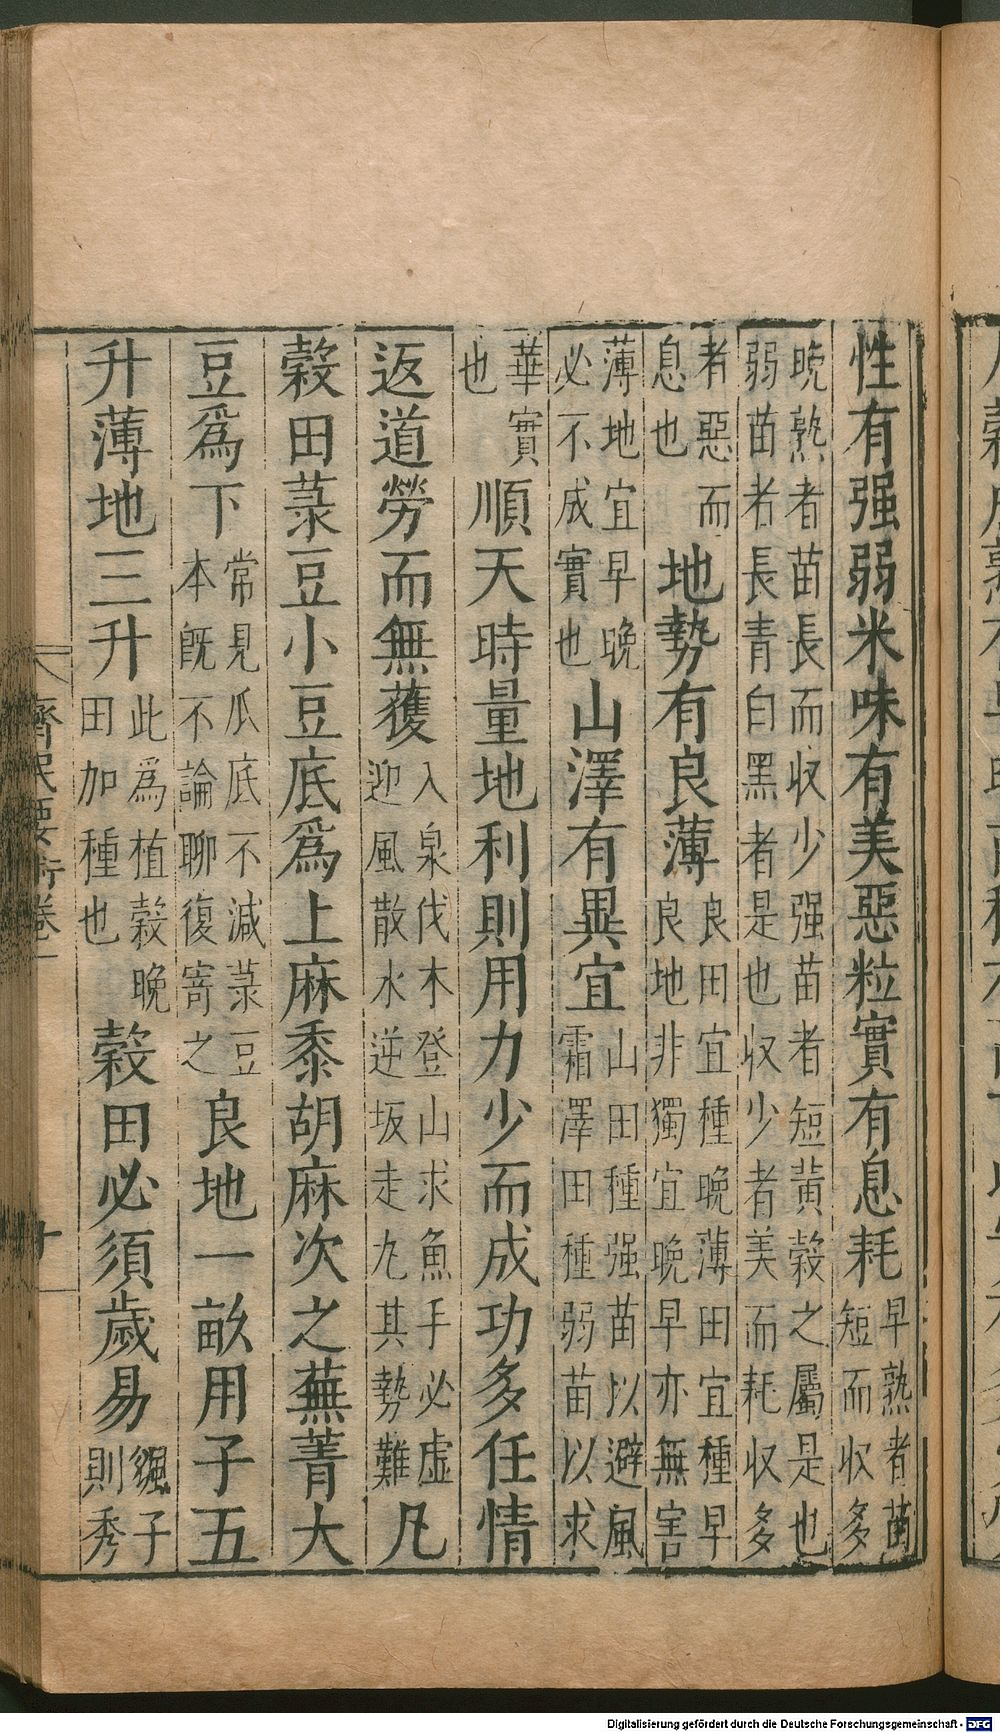 性有强弱米味有美惡粒實有息耗早熟者苗短而收多
晚熟者苗長而收少强苗者短黃穀之屬是也弱苗者長青白黑者是也收少者美而耗收多
者惡而息也地勢有良薄良田宜種晚薄田宜種早良地非獨宜晚早亦無害
薄地宜早晚必不成實也山澤有異宜山田種强苗以避風霜澤田種弱苗以求
華實也順天時量地利則用力少而成功多任情
返道勞而無獲入泉伐木登山求魚手必虛迎風散水逆坂走丸其勢難凡
穀田菉豆小豆底爲上麻黍胡麻次之蕪菁大
豆爲下常見瓜底不減菉豆本旣不論聊復寄之良地一畝用子五
升薄地三升此爲植穀晚田加種也穀田必須歲易子則秀
齊民要術卷一
十
Digitalisierung gefördert durch die Deutsche Forschungsgemeinschaft - DFG